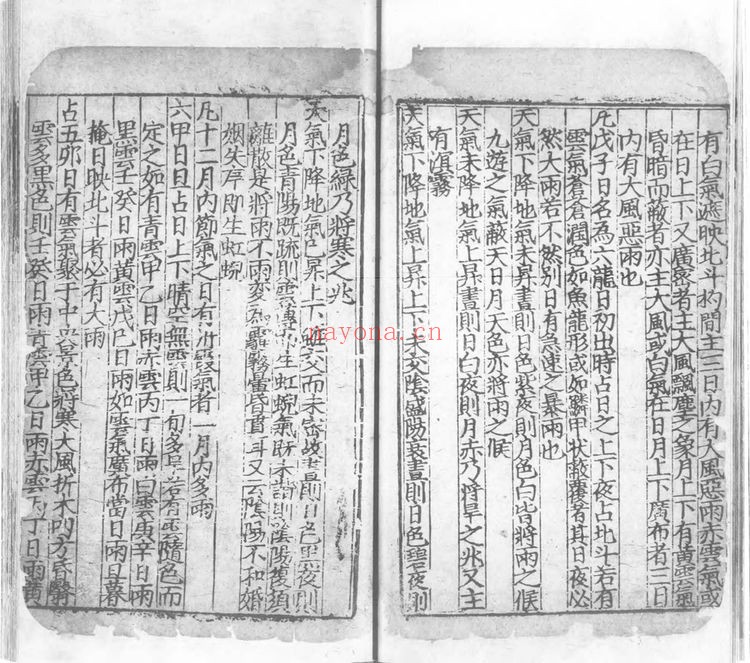 有白氣遮映北斗杓間主三日內有大風惡雨赤雲氣或
在日上下又廣密者主大風飄塵之象月上下有黃雲氣
昏暗而蔽者亦主大風或白氣在日月上下廣布者三日
內有大風惡雨也
凡戊子日名為六龍日初出時占日之上下夜占北斗若有
雲氣蒼蒼潤色如魚龍形或如鱗甲狀蔽覆者其日夜必
然大雨若不然別日有急速之暴雨也
天氣下降地氣未昇晝則日色寒夜則月色白皆將雨之候
九遊之氣蔽天日月天色亦將雨之候
天氣未降地氣上昇晝則日白夜則月赤乃將旱之兆又主
有滇霧
天氣下降地氣上昇上下未交陰盛陽衰晝則日色碧夜則
月色綠乃將寒之兆
天氣下降地氣已昇上下相交而未密故晝則日色黑夜則
月色青陽既疏則雲薄小生虹蜺氣既不諧則陰陽復須
離散是將雨不雨變為霾霧黃昏耳又云陰陽不和婚
姻失序即生虹蜺
凡十二月內節氣之日有風雲氣者一月內多雨
六甲日旦占日上下晴空無雲則一旬多旱若有雲隨色而
定之如有青雲甲乙日雨赤雲丙丁日雨白雲庚辛日雨
黑雲壬癸日雨黃雲戊巳日雨如雲氣廣布當日雨日暮
掩日映北斗者必有大雨
占五卯日有雲氣聚于中央景色將寒大風折木四方昏翳
雲多黑色則壬癸日雨青雲甲乙日雨赤雲丙丁日雨黃
nayona.cn